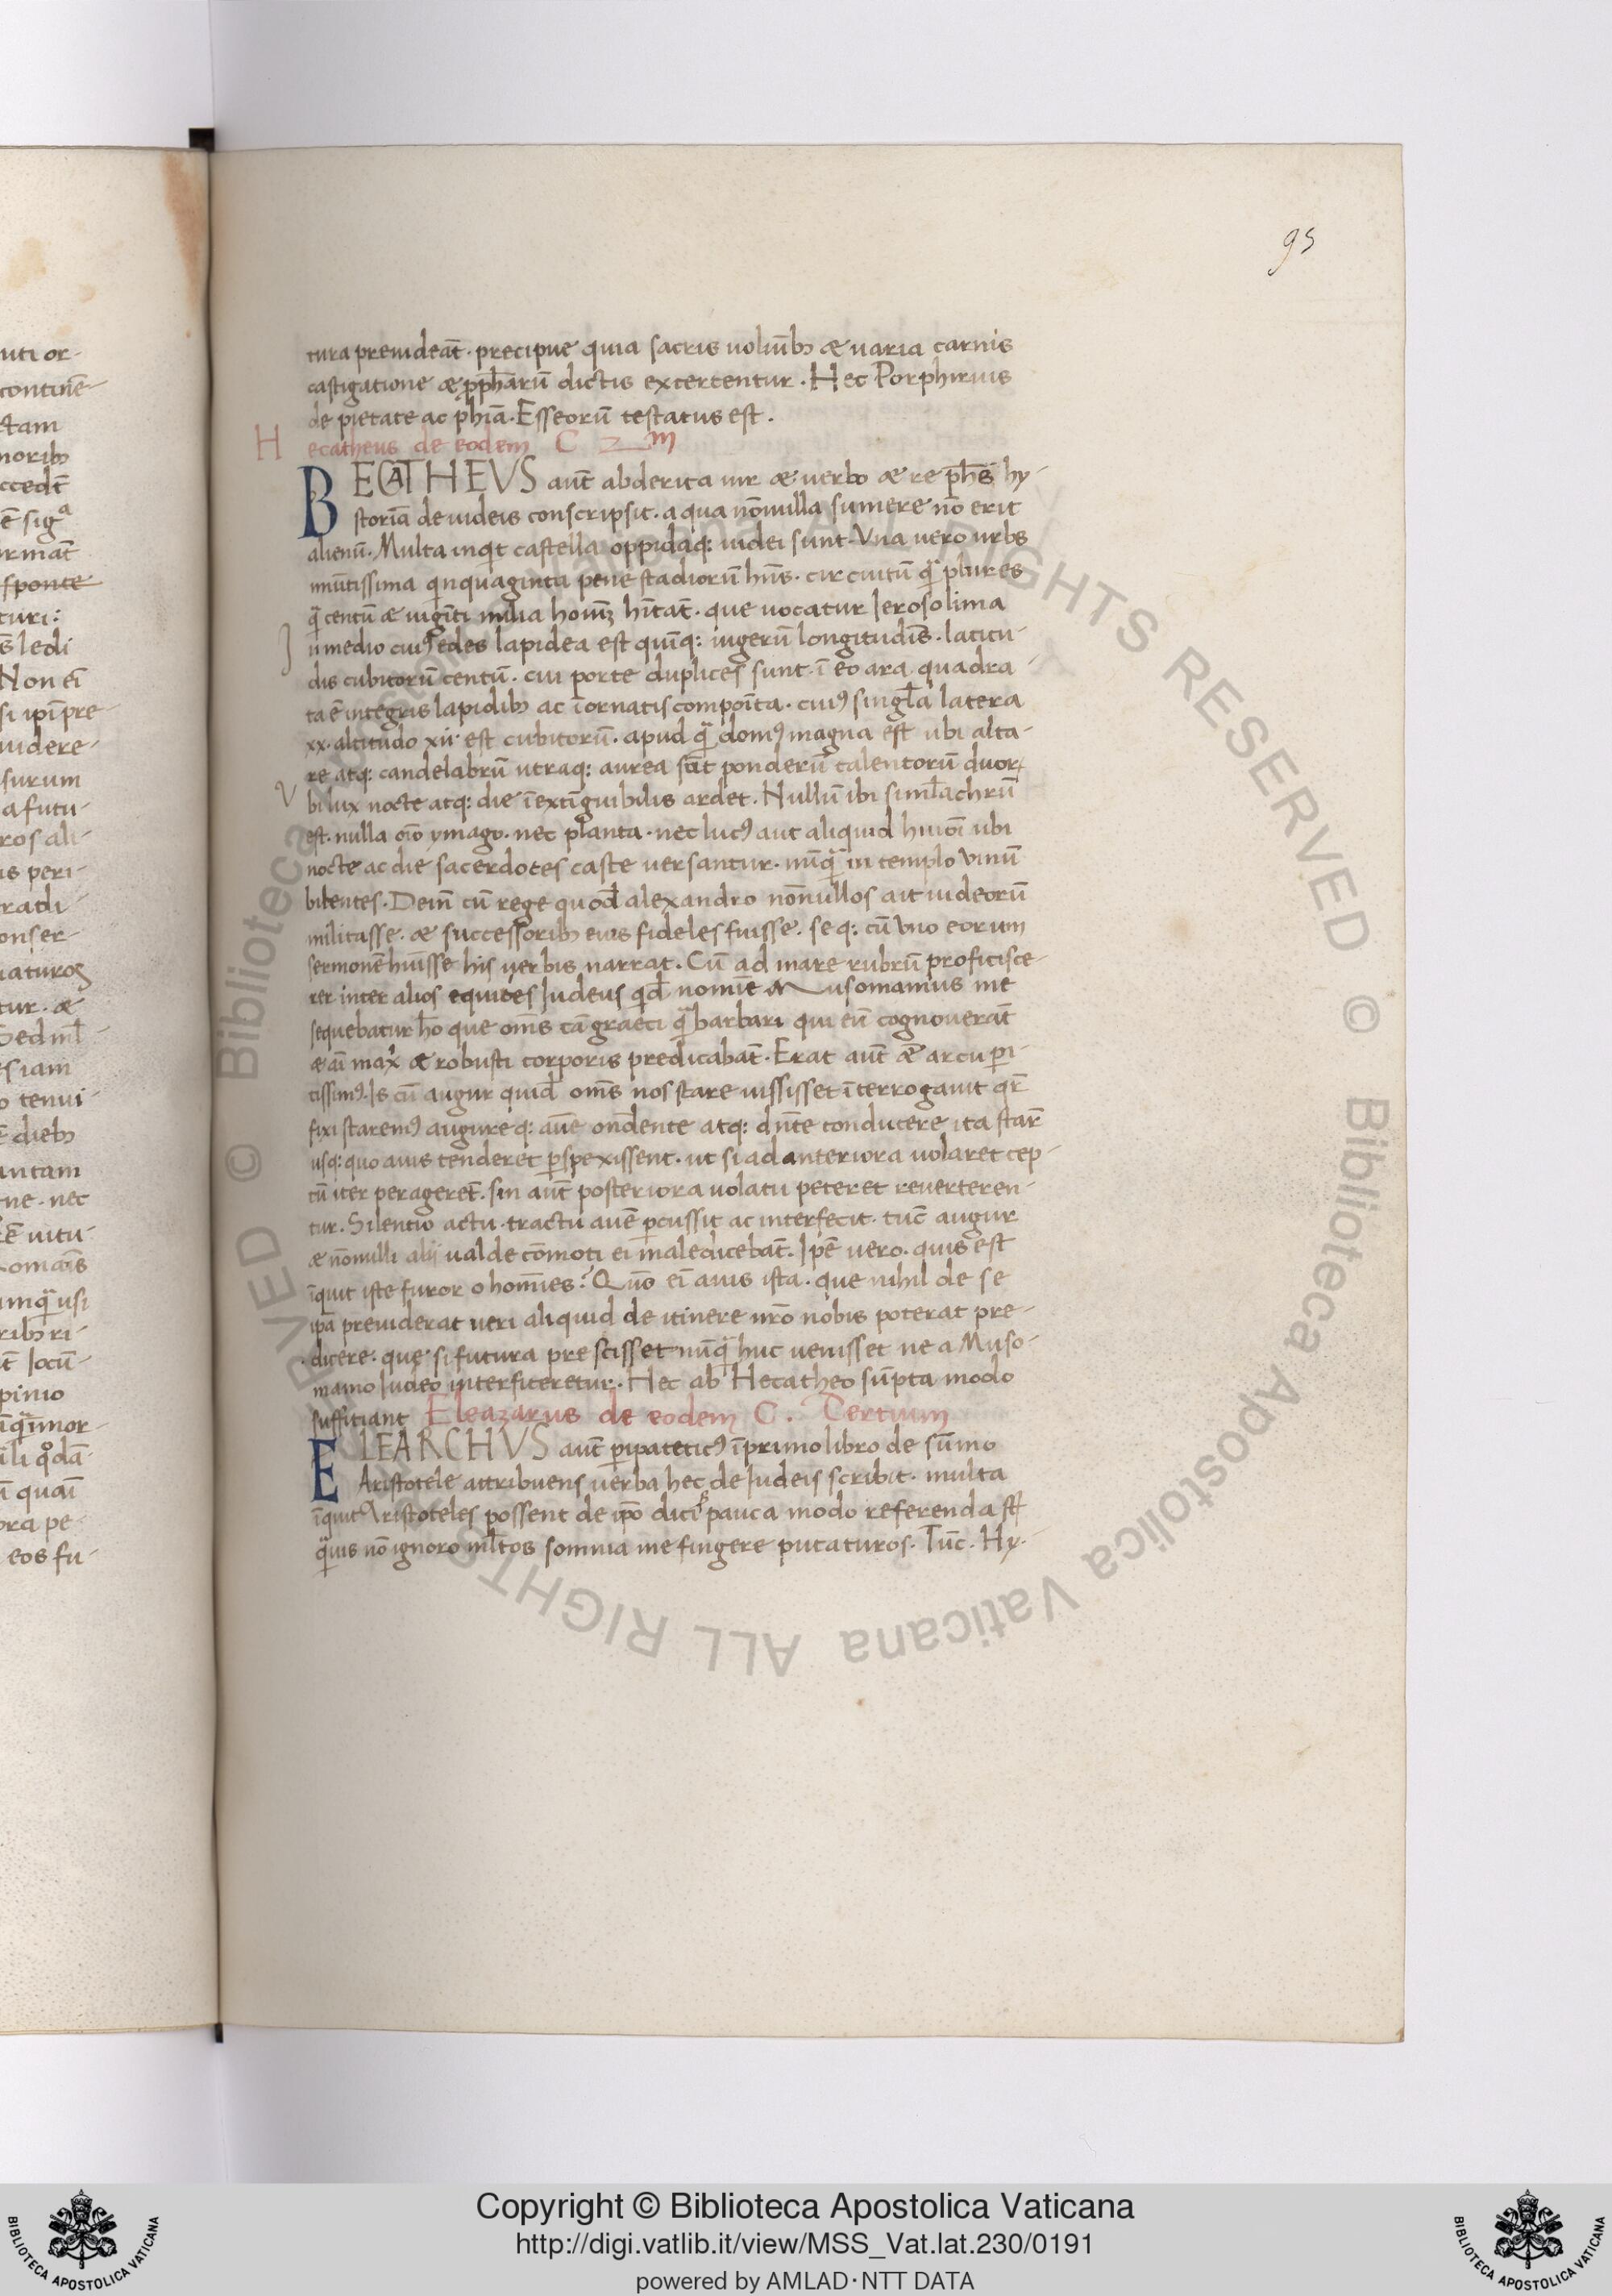 95
tura preuideāt · precipue quia sacris uoluīb᷒ & uaria carnis
castigatione & ꝓph̄arū dictis exercentur · Hec Porphirius
de pietate ac ph̄ia · Esseorū testatus est ·
Hecatheus de eodem C 2m
BECATHEVS aūt abderita uir & uerbo & re ph̄s hy-
storiā de iudeis conscripsit · a qua nōnulla sumere nō erit
alienū · Multa inqͥt castella oppidaq: iudei sunt · Vna uero urbs
munītissima qͥnquaginta pene stadiorū hn̄s · circuitū qᷓ plures
qᷓ centū & uigīti milia homīꝫ hītāt · que uocatur Ierosolima
In medio cuiꝰ edes lapidea est quīq: iugerū longitudīs · latitu-
dis cubitorū centū · cui porte duplices sunt · ī eo ara quadra-
ta ē integris lapidib᷒ ac īornatis compoīta · cuiꝰ singl̄a latera
xx · altitudo xii · est cubitorū · apud qᷓ domꝰ magna est ubi alta-
re atq: candelabrū utraq: aurea sūt ponderū talentorū duoꝝ
Vbi lux nocte atq: die īextīguibilis ardet · Nullū ibi siml̄achrū
est · nulla oīo ymago · nec planta · nec lucꝰ aut aliquid huiōi ubi
nocte ac die sacerdotes caste uersantur · nūqᷓ in templo uinū
bibentes · Deīn cū rege quod̄ alexandro nōnullos ait iudeorū
militasse · & successorib᷒ eius fideles fuisse · seq: cū uno eorum
sermonē huisse his uerbis narrat · Cū ad mare rubrū proficisce-
rer inter alios equites Iudeus qͥd̄ nomīe Musomamus me
sequebatur h̄o que om̄s tā graeci qᷓ barbari qui eū cognouerāt
& aī max̄ & robusti corporis predicabāt · Erat aūt & arcu ꝑi-
tissimꝰ · Is cū augur quid̄ om̄s nos stare iussisset īterrogauit qr̄
fixi staremꝰ augureq: auē on̄dente atq: dn̄te conducere ita star̄
usq: quo auis tenderet ꝑspexissent · ut si ad anteriora uolaret cep-
tū iter peragerēt · sin aūt posteriora uolatu peteret reuerteren-
tur · Silentio actu · tractu auē ꝑcussit ac interfecit · tūc augur
& nōnulli alij ualde cōmoti ei maledicebāt · Ipē uero · quis est
īquit iste furor o homīes ? Quō eī auis ista · que nihil de se
ipa preuiderat ueri aliquid de itinere nr̄o nobis poterat pre-
dicere · que si futura prescisset nūqᷓ huc uenisset ne a Muso-
mamo Iudeo interficeretur · Hec ab Hecatheo sūpta modo
suffitiant Eleazarus de eodem C · Tertium
ELEARCHVS aūt ꝑipateticꝰ ī primo libro de sūmo
Aristotele attribuens uerba hec de Iudeis scribit · multa
īquit Aristoteles possent de ipō dici pauca modo referenda st̄
qᷓuis nō ignoro ml̄tos somnia me fingere putaturos · Tūc · Hy-
uti or-
continē-
ctam
norib᷒
ccedt̄
ē sigᵃ
rmāt
sponte
turi :
s̄ ledi
Non eī
si ipī pre-
uidere-
surum
a futu-
ros ali-
is peri-
radi-
onser-
tur · &
Sed ml̄
esiam
o tenui-
ē dieb᷒
antam
ne · nec
uitu-
omāīs
umqᷓ usi
rib᷒ ri-
t̄ locū-
pinio
īqᷓ īmor-
ili qᵒdā-
ī quāī
ora pe-
eos fu-
© Biblioteca Apostolica Vaticana ALL RIGHTS RESERVED © Biblioteca Apostolica Vaticana ALL RIGHTS RESERVED
BIBLIOTECA APOSTOLICA VATICANA
Copyright © Biblioteca Apostolica Vaticana
http://digi.vatlib.it/view/MSS_Vat.lat.230/0191
powered by AMLAD·NTT DATA
BIBLIOTECA APOSTOLICA VATICANA